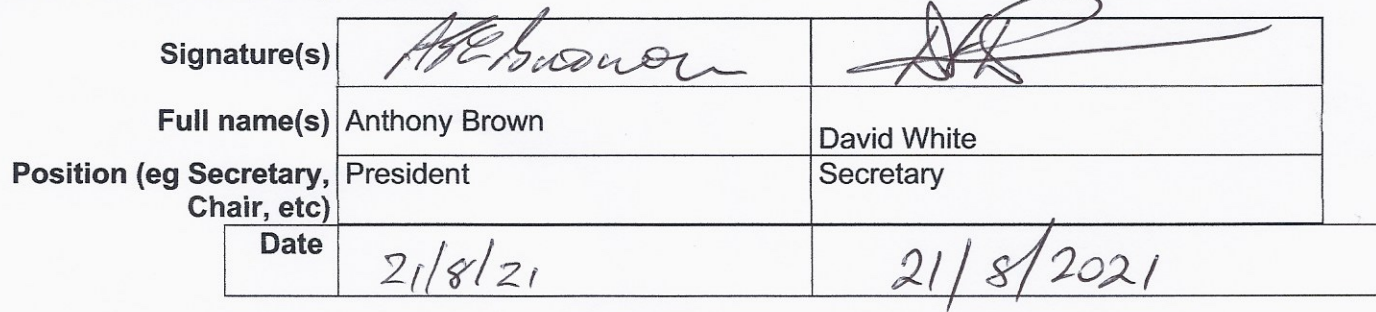 Signature(s)
Full name(s) Anthony Brown David White
Position (eg Secretary, President Secretary
Chair, etc)
Date 21/8/21 21/8/2021